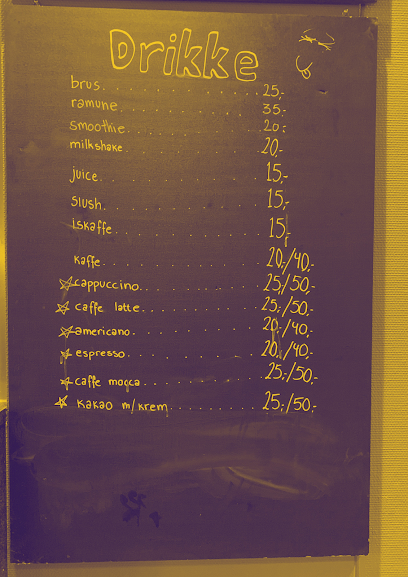 Drikke
brus. . . . . . . . . . . . . . 25,-
ramune. . . . . . . . . . . . 35,-
smoothie. . . . . . . . . . . 20,-
milkshake. . . . . . . . . . . 20,-
juice. . . . . . . . . . . . 15,-
slush. . . . . . . . . . . . 15,-
iskaffe. . . . . . . . . . . 15,-
kaffe. . . . . . . . . . . 20,-/40,-
☆ cappuccino. . . . . . . . . 25,-/50,-
☆ caffe latte. . . . . . . . . 25,-/50,-
☆ americano. . . . . . . . . 20,-/40,-
☆ espresso. . . . . . . . . 20,-/40,-
☆ caffe mocca. . . . . . . . . 25,-/50,-
☆ kakao m/krem. . . . . . . . . 25,-/50,-